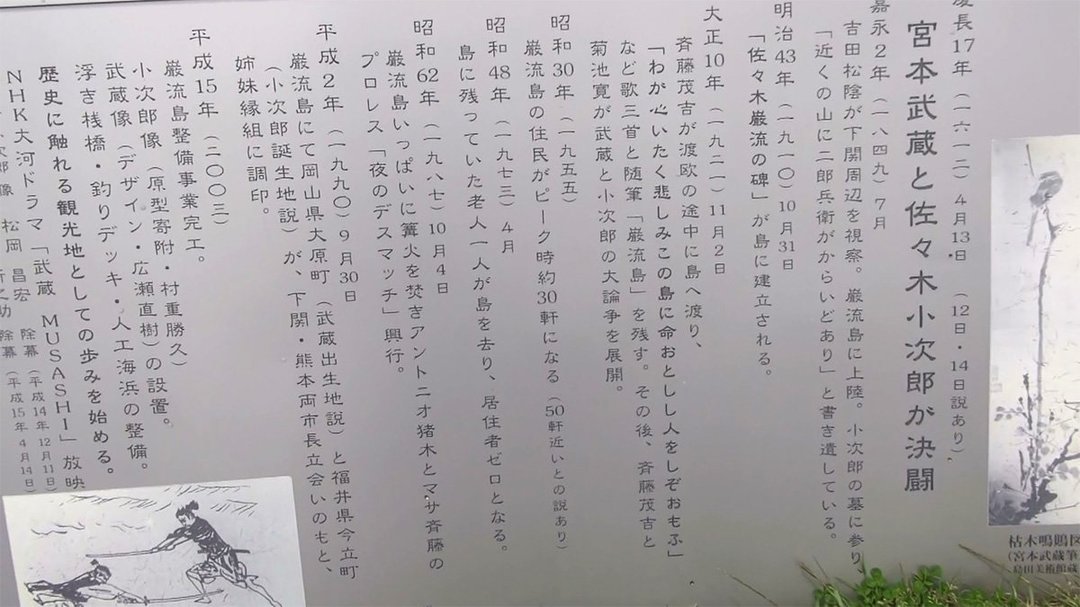 慶長17年(一六一二)4月13日(12日・14日説あり)
宮本武蔵と佐々木小次郎が決闘
嘉永2年(一八四九)7月
吉田松陰が下関周辺を視察。巌流島に上陸。小次郎の墓に参り
「近くの山に二郎兵衛がからいどあり」と書き遺している。
明治43年(一九一〇)10月31日
「佐々木巌流の碑」が島に建立される。
大正10年(一九二一)11月2日
斉藤茂吉が渡欧の途中に島へ渡り、
「わが心いたく悲しみこの島に命おとしし人をしぞおもふ」
など歌三首と随筆「巌流島」を残す。その後、斉藤茂吉と
菊池寛が武蔵と小次郎の大論争を展開。
昭和30年(一九五五)
巌流島の住民がピーク時約30軒になる(50軒近いとの説あり)
昭和48年(一九七三)4月
島に残っていた老人一人が島を去り、居住者ゼロとなる。
昭和62年(一九八七)10月4日
巌流島いっぱいに篝火を焚きアントニオ猪木とマサ斉藤の
プロレス「夜のデスマッチ」興行。
平成2年(一九九〇)9月30日
巌流島にて岡山県大原町(武蔵出生地説)と福井県今立町
(小次郎誕生地説)が、下関・熊本両市長立会いのもと、
姉妹縁組に調印。
平成15年(二〇〇三)
巌流島整備事業完工。
小次郎像(原型寄附・村重勝久)
武蔵像(デザイン・広瀬直樹)の設置。
浮き桟橋・釣りデッキ・人工海浜の整備。
歴史に触れる観光地としての歩みを始める。
NHK大河ドラマ「武蔵 MUSASHI」放映
次郎像 松岡 昌宏 除幕(平成14年12月11日)
之助 除幕(平成15年4月14日)
枯木鳴鵙図
(宮本武蔵筆
島田美術館蔵